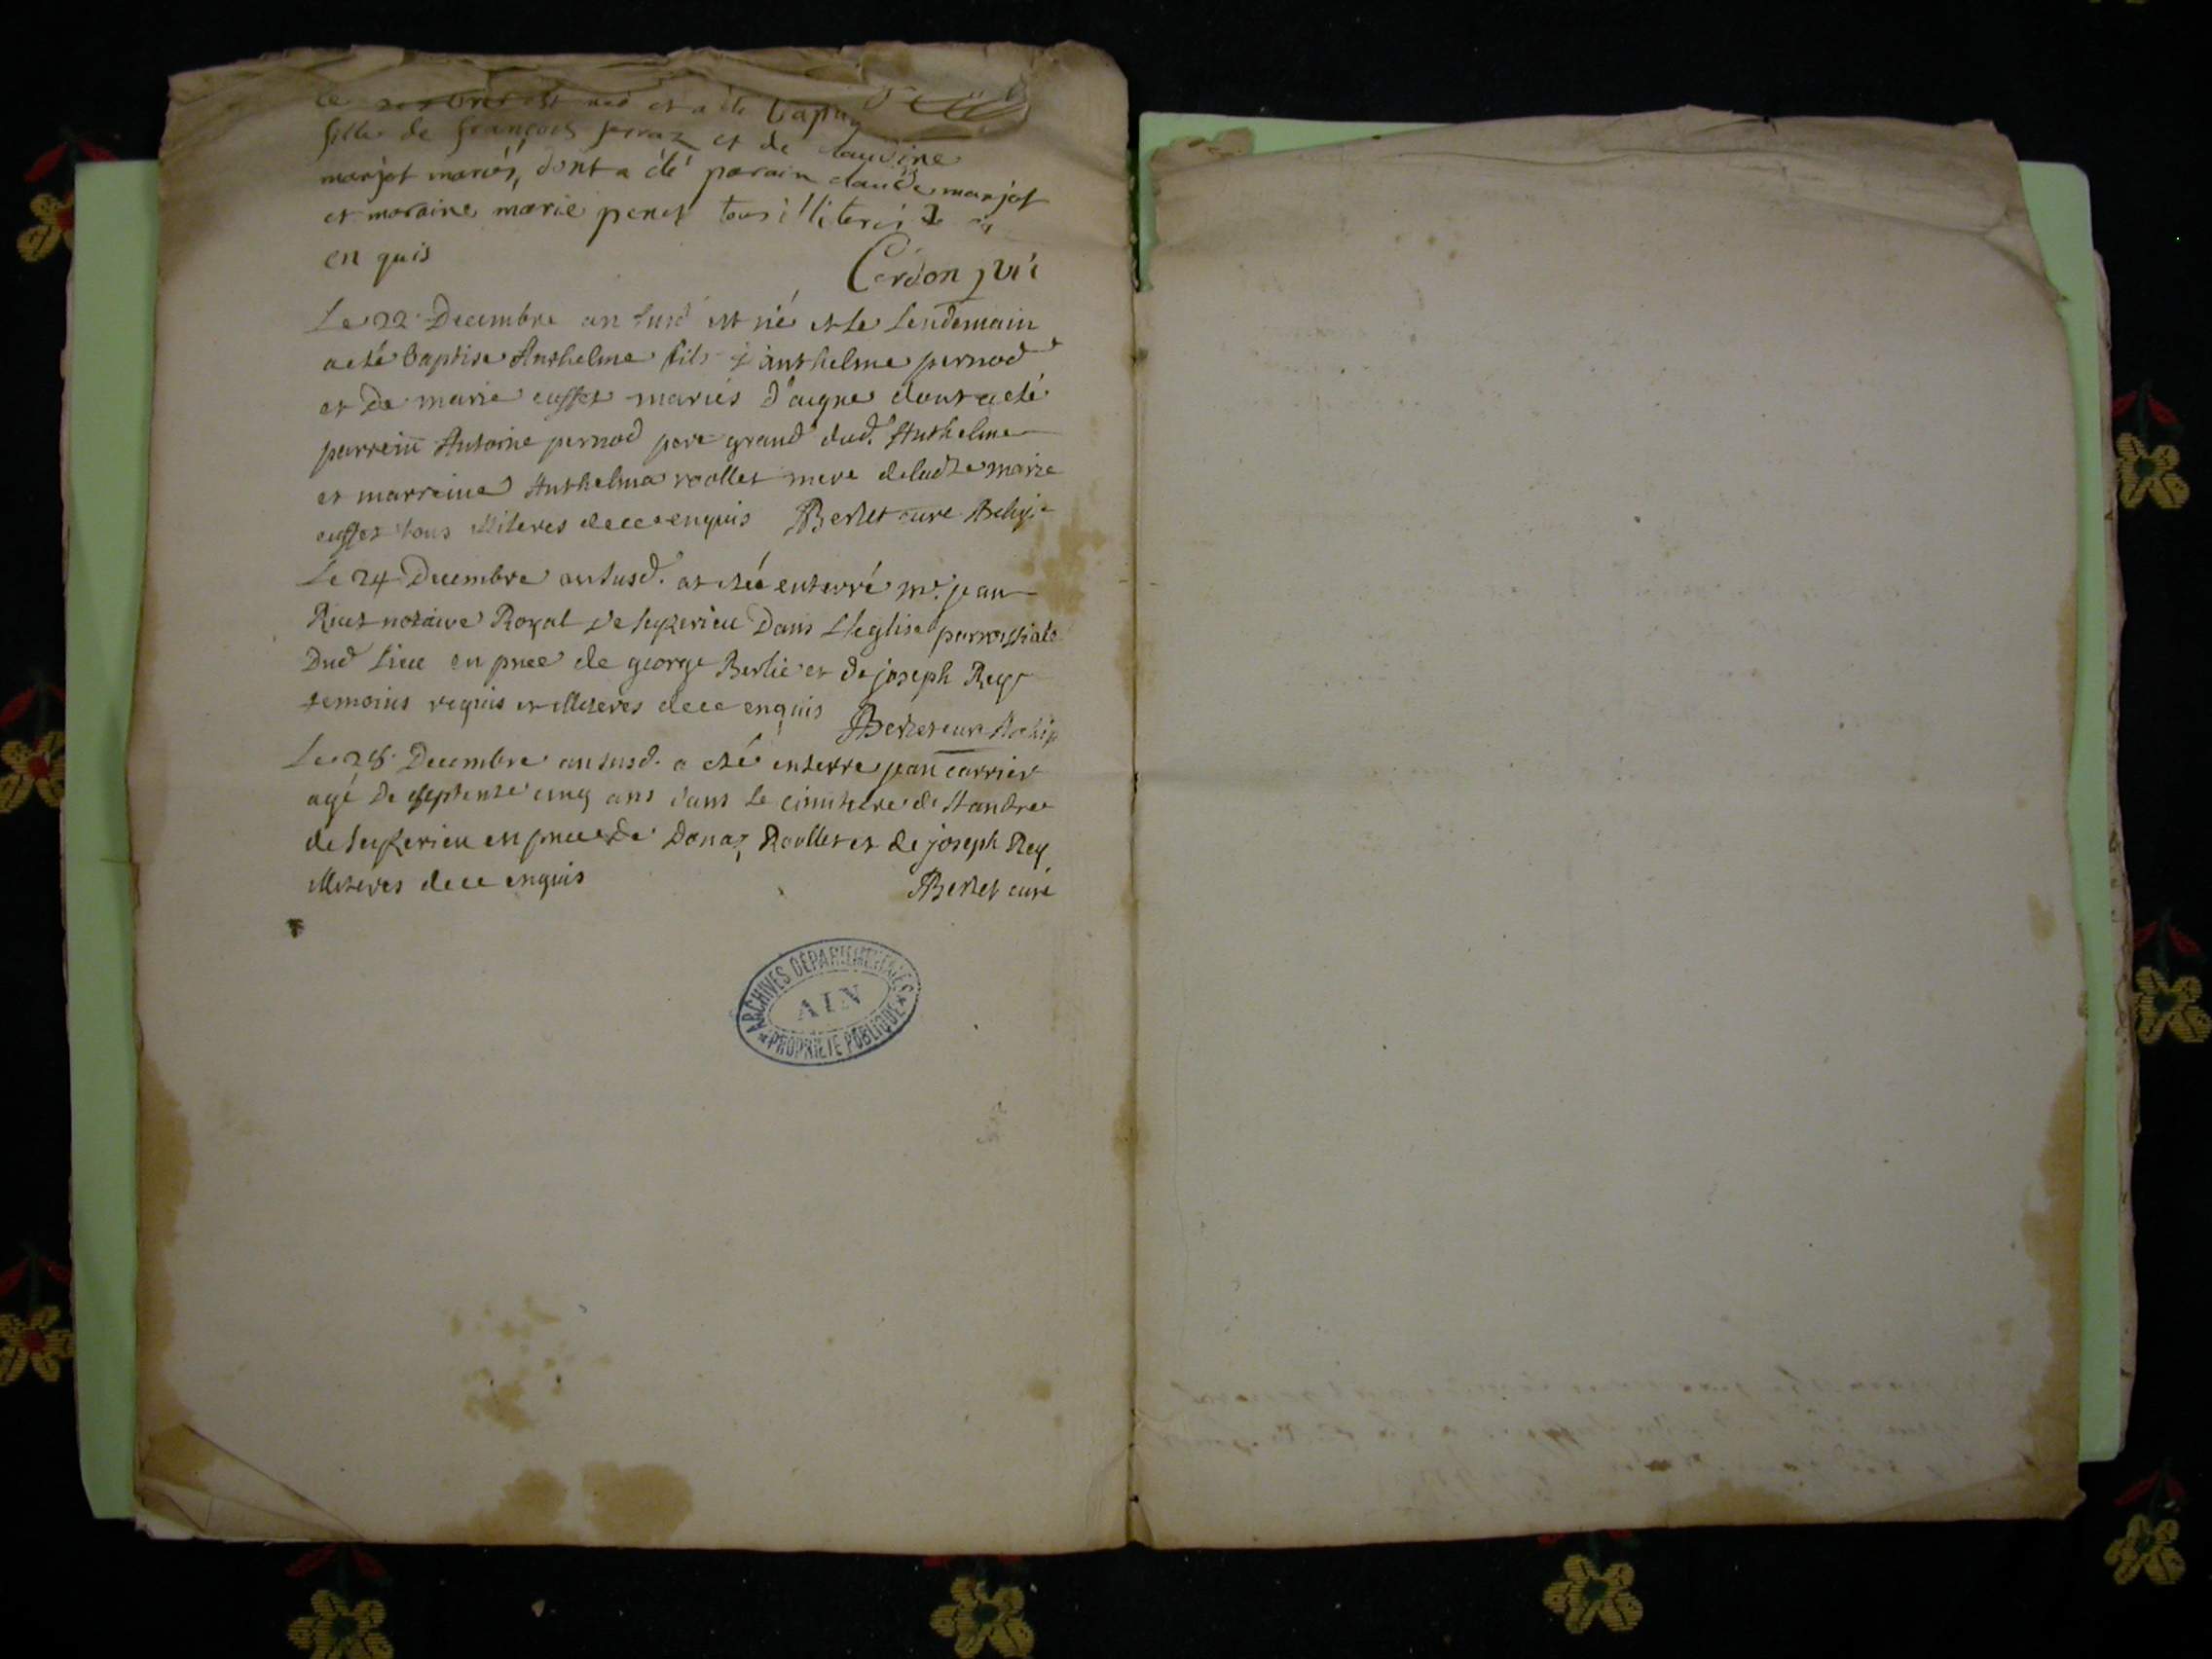 ce est née et a été
fille de françois ferraz et de claudine
marjot mariés, dont a été parain claude marjot
et maraine marie penet tous illiterés de ce
en quis
Cordon
Le 22 Decembre an susd est né et le lendemain
a eté baptisé Anthelme fils d'anthelme pernod
et de marie cusset mariés d'aigne dont a eté
parrein Antoine pernod pere grand dud. Anthelme
et marreine Anthelma roollet mere deladte marie
cusset tous illiteres de ce enquis Berlet curé
Le 24 Decembre an susd. at esté enterré mr. jean
notaire Royal de seyzerieu Dans L'eglise parrossiale
Dud Lieu en pnce de george Berlie et de joseph Rey
temoins requis et illiteres de ce enquis Berlet curé
Le 28 Decembre an susd. a esté enterre jean carrier
agé de septente cinq ans dans le cimitiere de St andre
de seyzerieu en pnce de Donaz Roollet et de joseph Rey
illiteres de ce enquis Berlet curé
ARCHIVES DEPARTEMENTALES
AIN
PROPRIETE PUBLIQUE